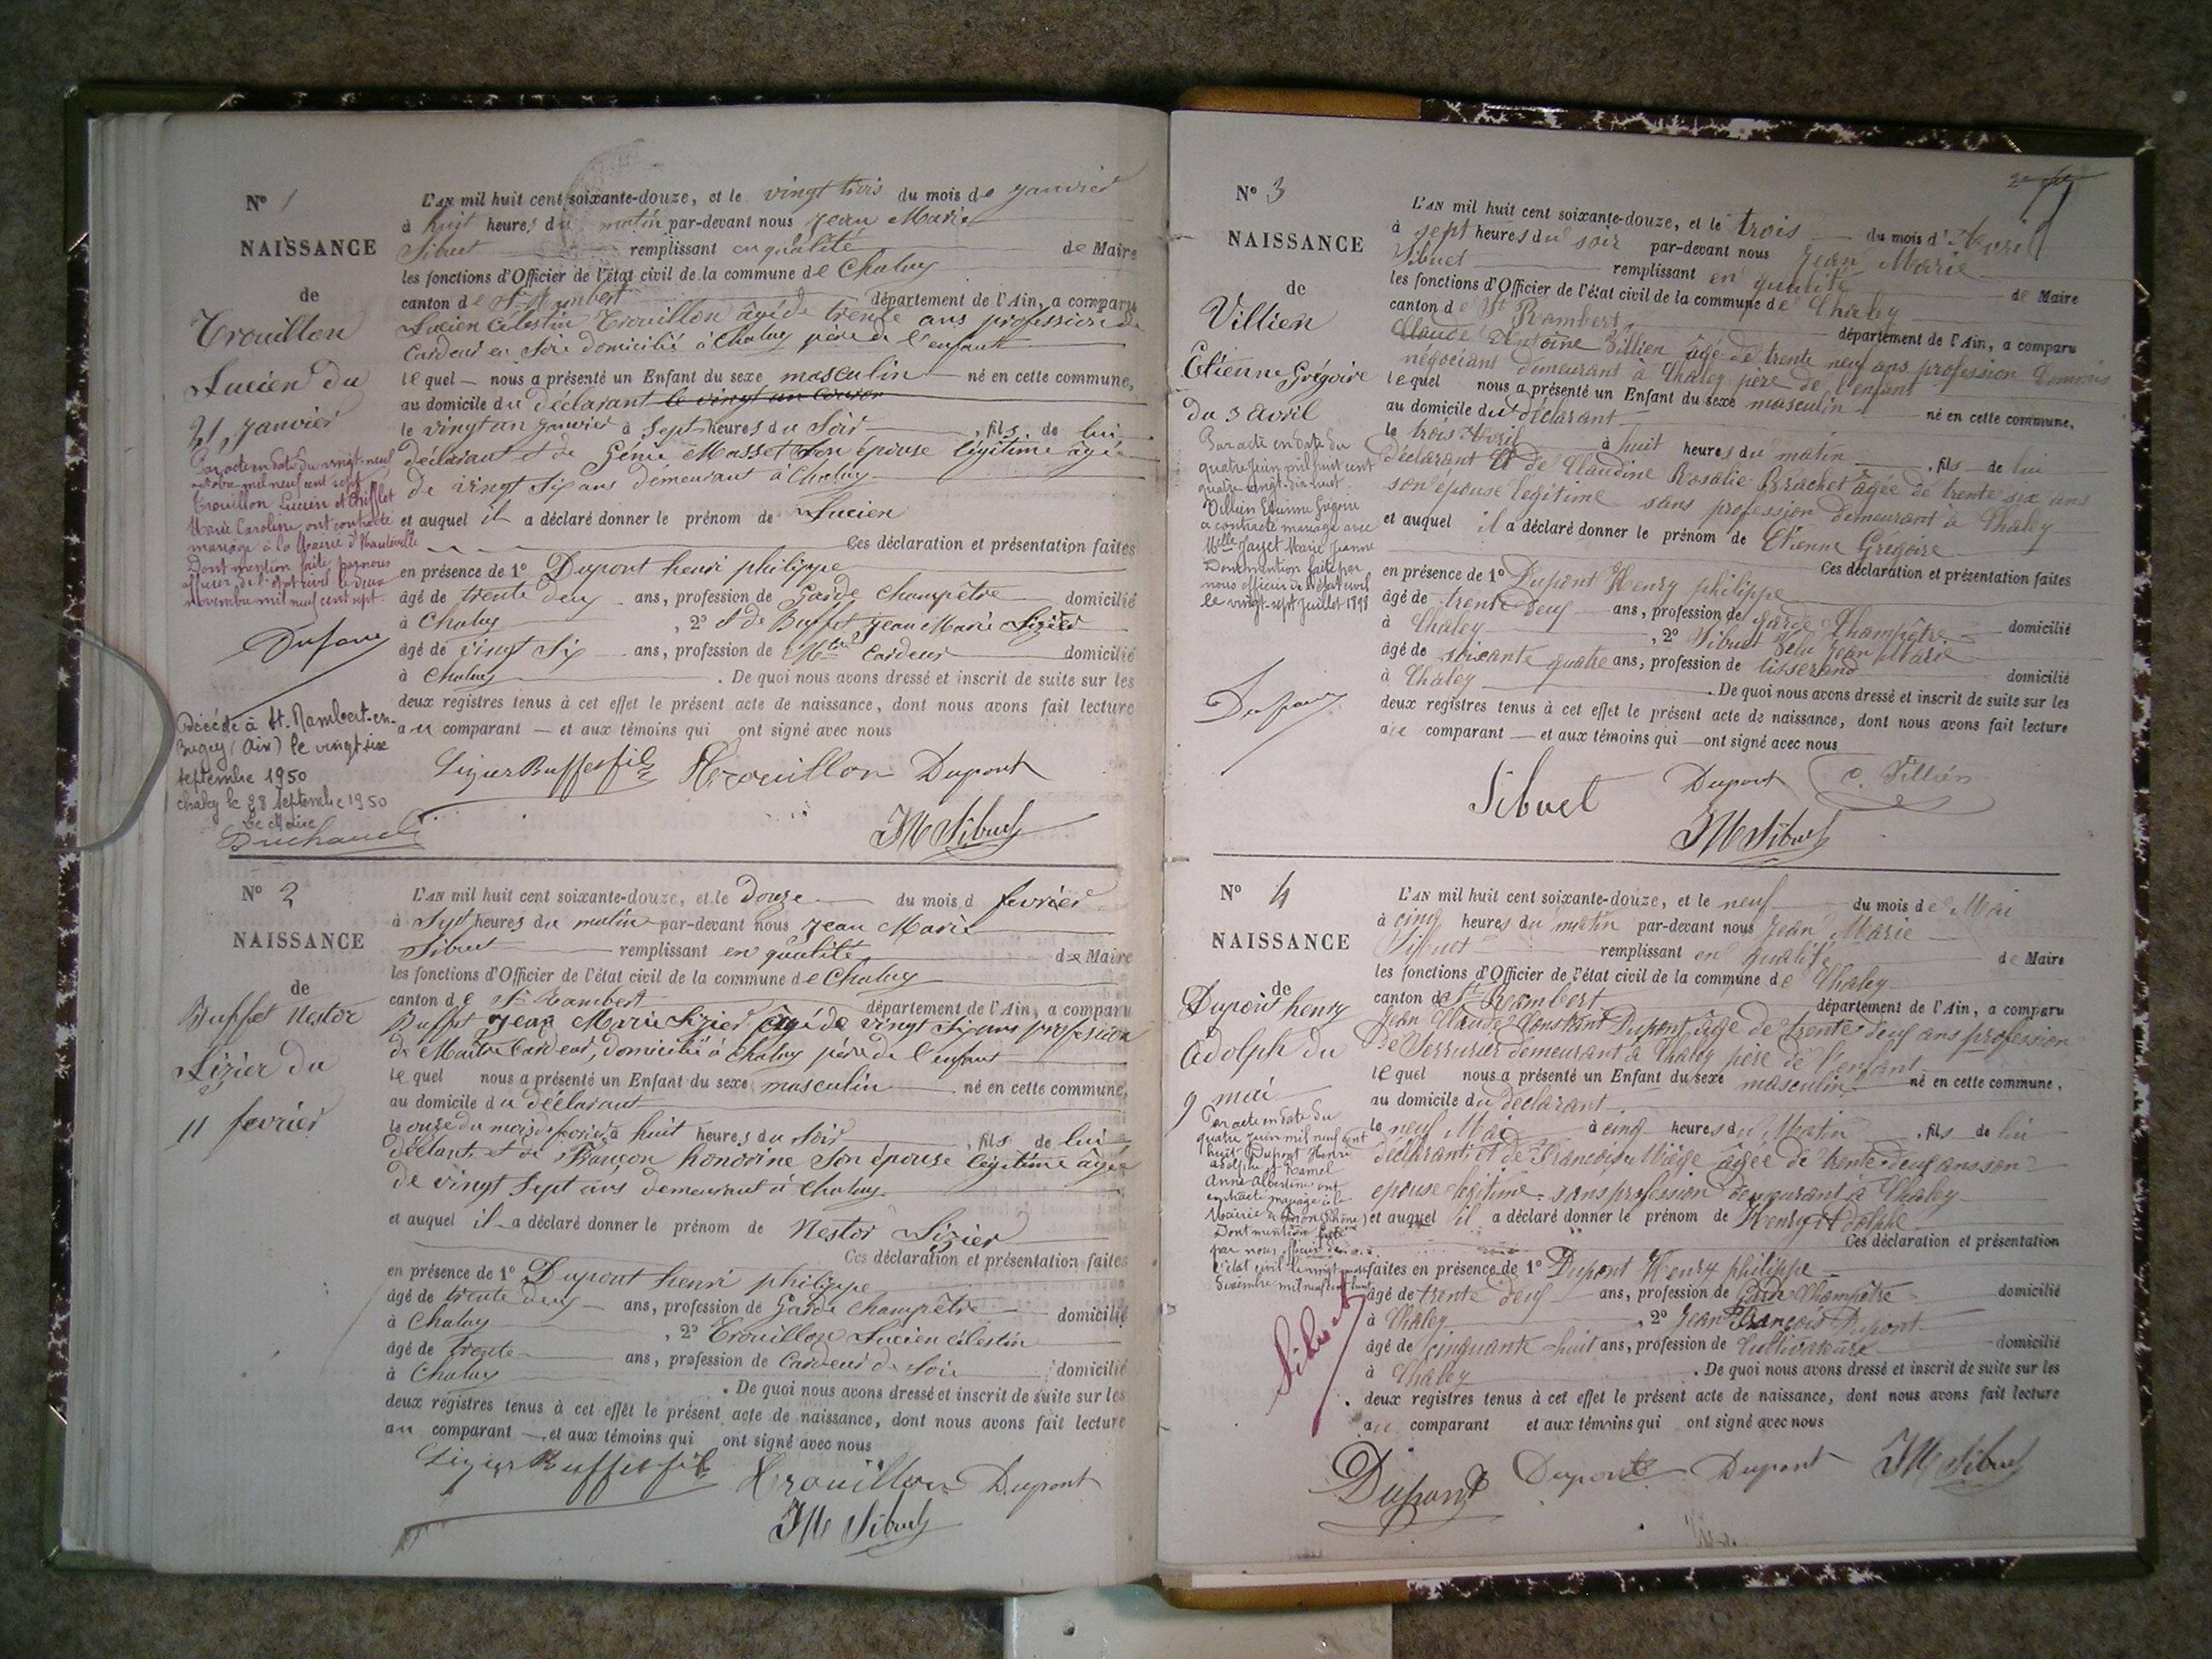 N° 1
NAISSANCE
de
Trouillon
Lucien du
21 janvier
Par acte en date du vingt-neuf
octobre mil neuf cent sept
Trouillon Lucien et Chifflet
Marie Caroline, ont contracté
mariage à la Mairie d'Hauteville
Dont mention faite par nous
officier de l'état civil le deux
novembre mil neuf cent sept.
Décédé à St. Rambert-en-
Bugey (Ain) le vingt six
septembre 1950
Chaley le 28 Septembre 1950
Le Maire
L'AN mil huit cent soixante-douze, et le vingt trois du mois de janvier
à huit heures du matin par-devant nous Jean Marie
Sibuet remplissant en qualité de Maire
les fonctions d'Officier de l'état civil de la commune de Chaley
canton de St Rambert département de l'Ain, a comparu
Lucien Célestin Trouillon âgé de trente ans profession de
Cardeur en Soie domicilié à Chaley père de l'enfant
lequel nous a présenté un Enfant du sexe masculin né en cette commune,
au domicile du déclarant
le vingt un janvier à sept heures du Soir, fils de lui
déclarant et de Génie Masset Son épouse légitime âgée
de vingt Six ans demeurant à Chaley
et auquel il a déclaré donner le prénom de Lucien
Ces déclaration et présentation faites
en présence de 1° Dupont henri philippe
âgé de trente deux ans, profession de Garde Champêtre domicilié
à Chaley, 2° et de Buffet Jean Marie Lizier
âgé de vingt Six ans, profession de Mtre Cardeur domicilié
à Chaley. De quoi nous avons dressé et inscrit de suite sur les
deux registres tenus à cet effet le présent acte de naissance, dont nous avons fait lecture
au comparant et aux témoins qui ont signé avec nous
Lizier Buffet fils Trouillon Dupont
JM Sibuet
N° 2
NAISSANCE
de
Buffet Nestor
Lizier du
11 fevrier
L'AN mil huit cent soixante-douze, et le Douze du mois d fevrier
à Sept heures du matin par-devant nous Jean Marie
Sibuet remplissant en qualité de Maire
les fonctions d'Officier de l'état civil de la commune de Chaley
canton de St Rambert département de l'Ain, a comparu
Buffet Jean Marie Lizier âgé de vingt Six ans profession
de Maître Cardeur, domicilié à Chaley père de l'enfant
lequel nous a présenté un Enfant du sexe masculin né en cette commune,
au domicile du déclarant
le onze du mois de fevrier à huit heures du Soir, fils de lui
déclarant et de Françon honorine Son épouse légitime âgée
de vingt Sept ans demeurant à Chaley
et auquel il a déclaré donner le prénom de Nestor Lizier
Ces déclaration et présentation faites
en présence de 1° Dupont henri philippe
âgé de trente deux ans, profession de Garde Champêtre domicilié
à Chaley, 2° Trouillon Lucien Célestin
âgé de trente ans, profession de Cardeur de Soie domicilié
à Chaley. De quoi nous avons dressé et inscrit de suite sur les
deux registres tenus à cet effet le présent acte de naissance, dont nous avons fait lecture
au comparant et aux témoins qui ont signé avec nous
Lizier Buffet fils Trouillon Dupont
JM Sibuet
N° 3
NAISSANCE
de
Villien
Etienne Grégoire
du 3 Avril
Par acte en date du
quatre juin mil huit cent
quatre vingt-dix-huit
Villien Etienne Grégoire
a contracté mariage avec
Melle Jayet Marie Jeanne
Dont mention faite par
nous officier de l'état civil
le vingt-sept Juillet 1898
L'AN mil huit cent soixante-douze, et le trois du mois d'Avril
à sept heures du soir par-devant nous Jean Marie
Sibuet remplissant en qualité de Maire
les fonctions d'Officier de l'état civil de la commune de Chaley
canton de St Rambert département de l'Ain, a comparu
Claude Antoine Villien âgé de trente neuf ans profession
négociant demeurant à Chaley père de l'enfant
lequel nous a présenté un Enfant du sexe masculin né en cette commune,
au domicile du déclarant
le trois Avril à huit heures du matin, fils de lui
déclarant et de Claudine Rosalie Brachet âgée de trente six ans
son épouse légitime sans profession demeurant à Chaley
et auquel il a déclaré donner le prénom de Etienne Grégoire
Ces déclaration et présentation faites
en présence de 1° Dupont Henry philippe
âgé de trente deux ans, profession de garde Champêtre domicilié
à Chaley, 2° Sibuet Jean Marie
âgé de soixante quatre ans, profession de tisserand domicilié
à Chaley. De quoi nous avons dressé et inscrit de suite sur les
deux registres tenus à cet effet le présent acte de naissance, dont nous avons fait lecture
au comparant et aux témoins qui ont signé avec nous
Sibuet Dupont C. Villien
JM Sibuet
N° 4
NAISSANCE
de
Dupont henry
Adolph du
9 mai
Par acte en date du
quatre juin mil neuf cent
huit Dupont Henri
Adolphe et Ramel
Anne Albertine ont
contracté mariage à la
Mairie de (Rhône)
Dont mention faite
par nous officier de
l'état civil le vingt
Sibuet
L'AN mil huit cent soixante-douze, et le neuf du mois de Mai
à cinq heures du matin par-devant nous Jean Marie
Sibuet remplissant en qualité de Maire
les fonctions d'Officier de l'état civil de la commune de Chaley
canton de St Rambert département de l'Ain, a comparu
Jean Claude Constant Dupont, âgé de trente deux ans profession
de Serrurier demeurant à Chaley père de l'enfant
lequel nous a présenté un Enfant du sexe masculin né en cette commune,
au domicile du déclarant
le neuf Mai à cinq heures du Matin, fils de lui
déclarant et de Françoise Miège âgée de trente deux ans son
épouse légitime sans profession demeurant à Chaley
et auquel il a déclaré donner le prénom de Henry Adolphe
Ces déclaration et présentation
faites en présence de 1° Dupont Henry philippe
âgé de trente deux ans, profession de Garde Champêtre domicilié
à Chaley, 2° Jean François Dupont
âgé de cinquante huit ans, profession de Cultivateur domicilié
à Chaley. De quoi nous avons dressé et inscrit de suite sur les
deux registres tenus à cet effet le présent acte de naissance, dont nous avons fait lecture
au comparant et aux témoins qui ont signé avec nous
Dupont Dupont Dupont JM Sibuet